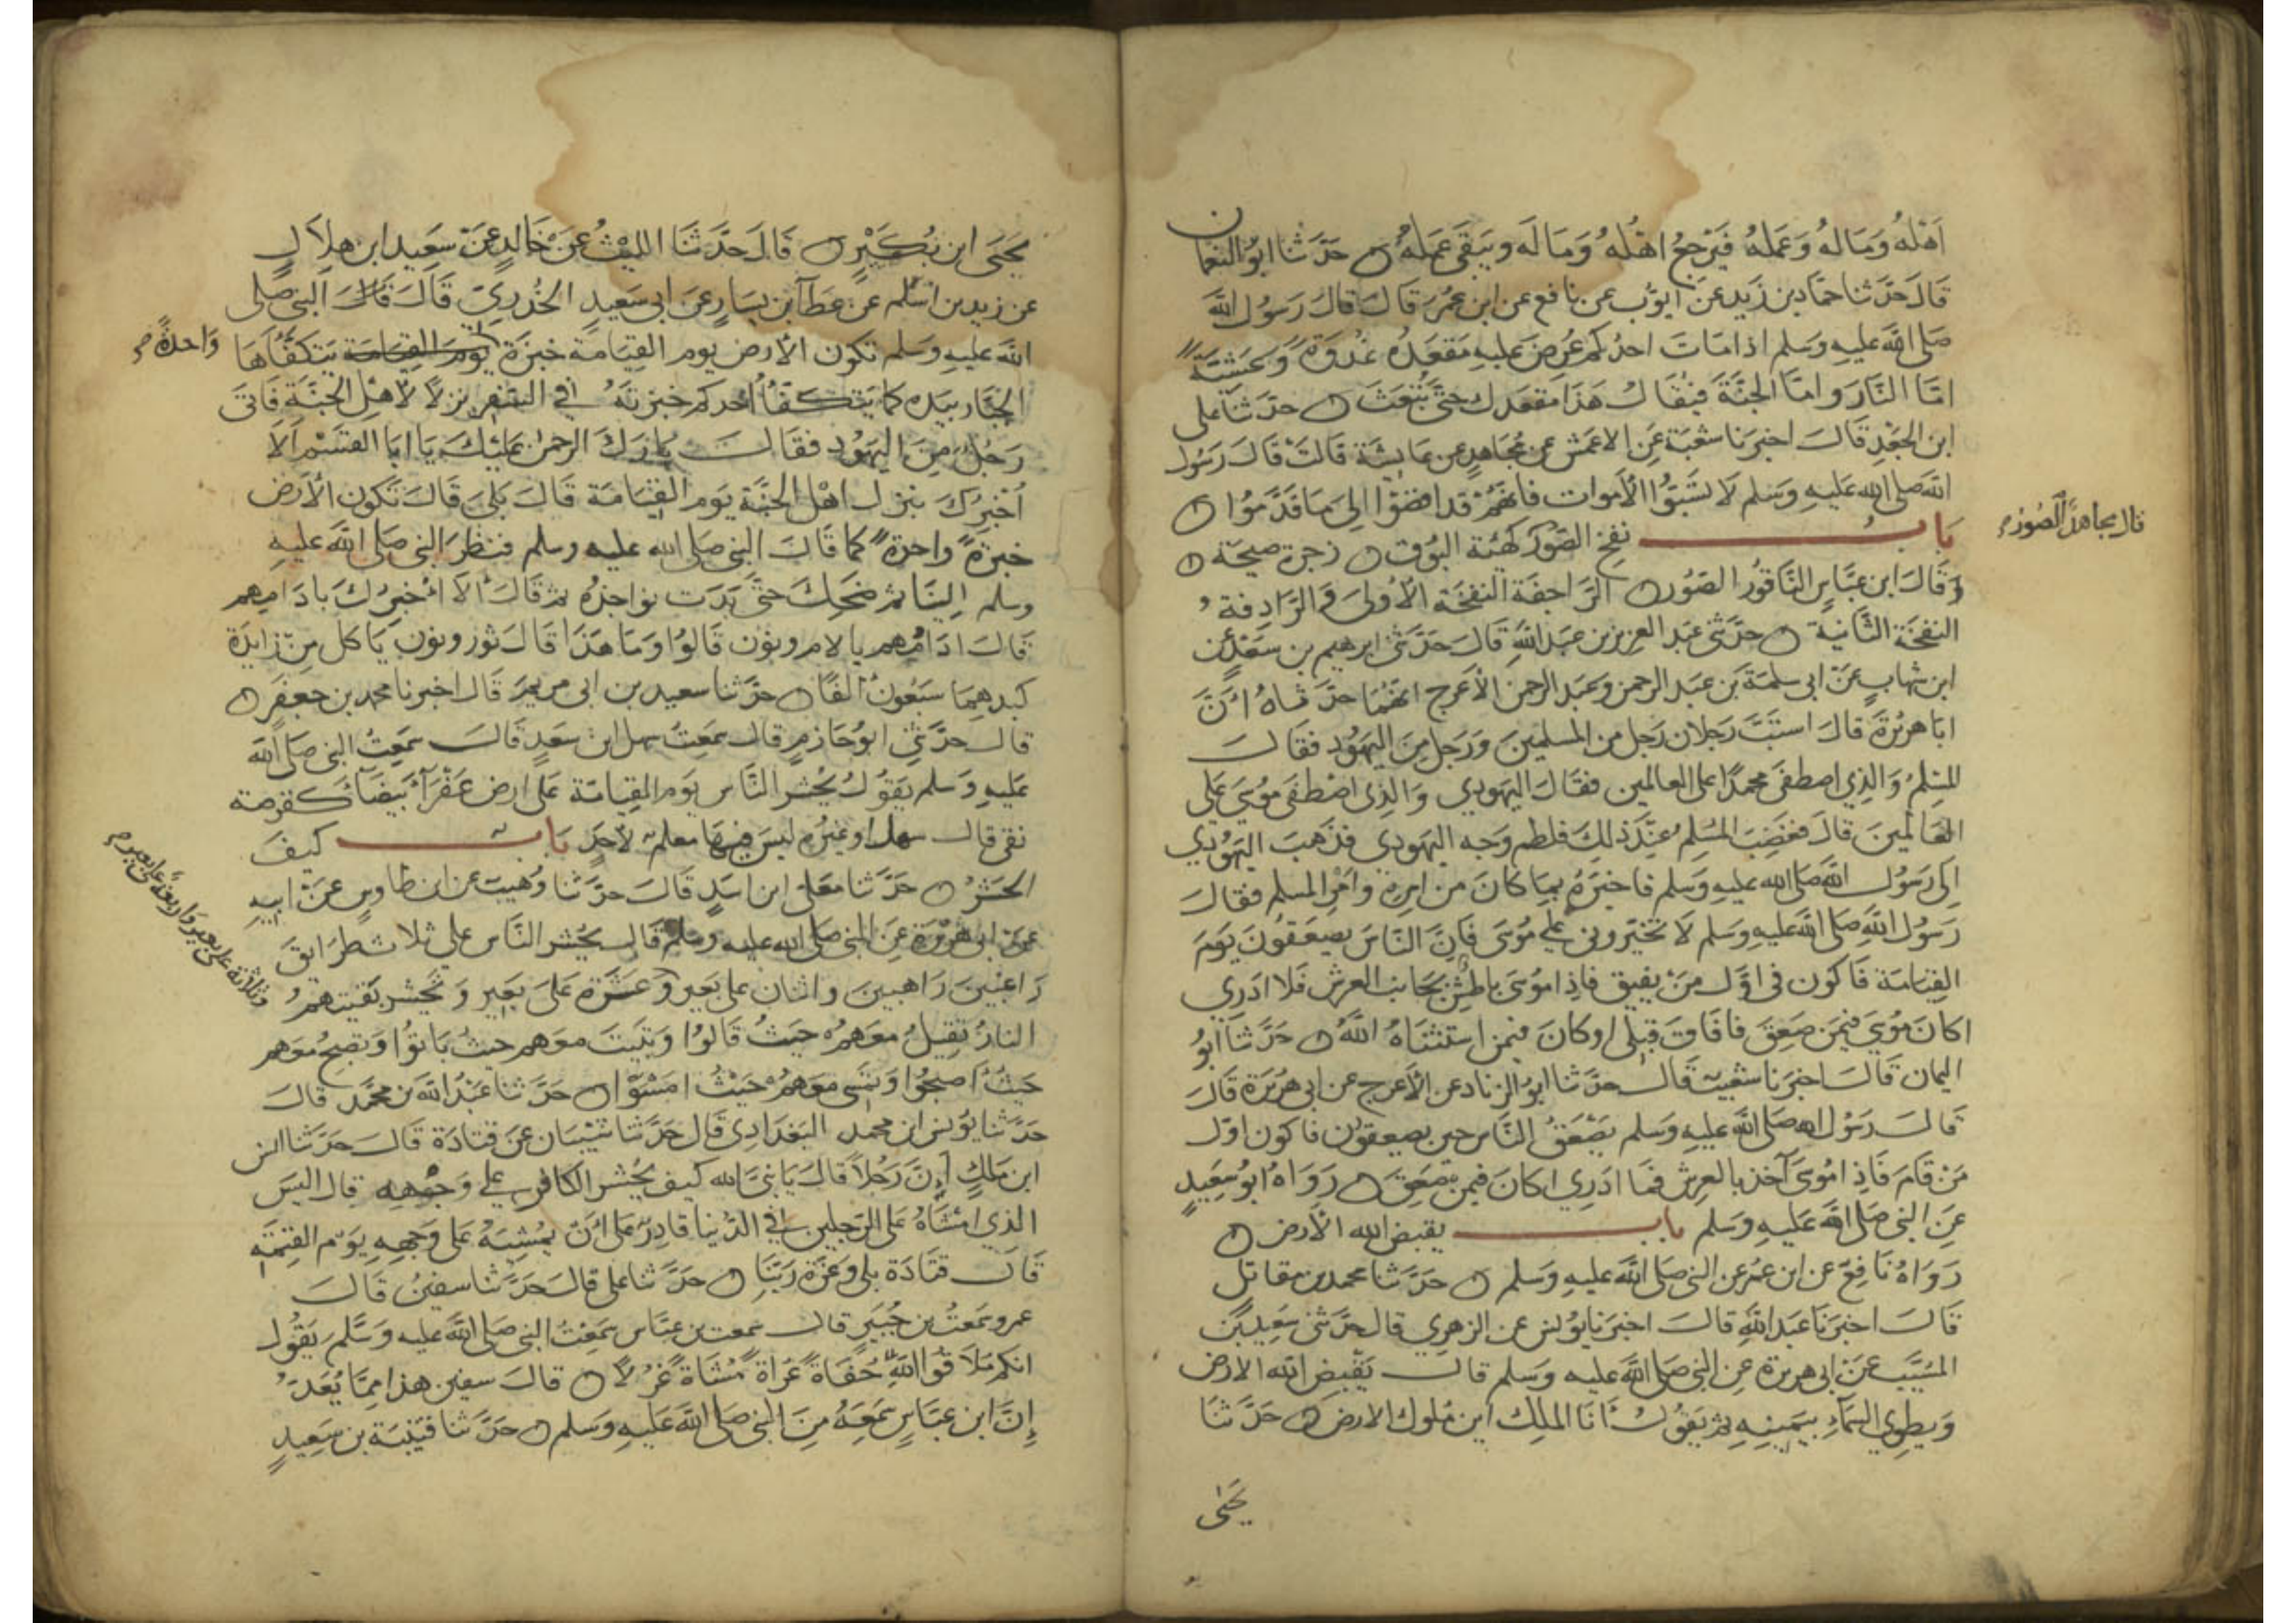 اهله وماله وعمله فيرجع اهله وماله ويبقى عمله حدثنا ابو النعمان
قال حدثنا حماد بن زيد عن ايوب عن نافع عن ابن عمر قال قال رسول الله
صلى الله عليه وسلم اذا مات احدكم عرض عليه مقعده غدوة وعشية
اما النار واما الجنة فيقال هذا مقعدك حتى تبعث حدثنا على
ابن الجعد قال اخبرنا شعبة عن الاعمش عن مجاهد عن عايشة قالت قال رسول
الله صلى الله عليه وسلم لا تسبوا الاموات فانهم قد افضوا الى ما قدموا
باب نفخ الصور كهيئة البوق زجرة صيحة
قال مجاهد الصور
وقال ابن عباس الناقور الصور الراجفة النفخة الاولى والرادفة
النفخة الثانية حدثني عبد العزيز بن عبد الله قال حدثني ابرهيم بن سعد عن
ابن شهاب عن ابى سلمة بن عبد الرحمن وعبد الرحمن الاعرج انهما حدثاه ان
ابا هريرة قال استب رجلان رجل من المسلمين ورجل من اليهود فقال
المسلم والذي اصطفى محمدا على العالمين فقال اليهودي والذي اصطفى موسى على
العالمين قال فغضب المسلم عند ذلك فلطم وجه اليهودي فذهب اليهودي
الى رسول الله صلى الله عليه وسلم فاخبره بما كان من امره وامر المسلم فقال
رسول الله صلى الله عليه وسلم لا تخيروني على موسى فان الناس يصعقون يوم
القيامة فاكون في اول من يفيق فاذا موسى باطش بجانب العرش فلا ادري
اكان موسى فيمن صعق فافاق قبلى او كان فيمن استثناه الله حدثنا ابو
اليمان قال اخبرنا شعيب قال حدثنا ابو الزناد عن الاعرج عن ابى هريرة قال
قال رسول الله صلى الله عليه وسلم يصعق الناس حين يصعقون فاكون اول
من قام فاذا موسى آخذ بالعرش فما ادري اكان فيمن صعق رواه ابو سعيد
عن النبى صلى الله عليه وسلم باب يقبض الله الارض
رواه نافع عن ابن عمر عن النبى صلى الله عليه وسلم حدثنا محمد بن مقاتل
قال اخبرنا عبد الله قال اخبرنا يونس عن الزهري قال حدثنى سعيد بن
المسيب عن ابى هريرة عن النبى صلى الله عليه وسلم قال يقبض الله الارض
ويطوي السماء بيمينه ثم يقول انا الملك اين ملوك الارض حدثنا
يحيى
يحيى ابن بكير قال حدثنا الليث عن خالد عن سعيد ابن هلال
عن زيد بن اسلم عن عطآ بن يسار عن ابى سعيد الخدري قال قال النبى صلى
الله عليه وسلم تكون الارض يوم القيامة خبزة يوم القيامة يتكفاها
واحدة
الجبار بيده كما يتكفا احدكم خبزته في السفر نزلا لاهل الجنة فاتى
رجل من اليهود فقال بارك الرحمن عليك يا ابا القسم الا
اخبرك بنزل اهل الجنة يوم القيامة قال بلى قال تكون الارض
خبزة واحدة كما قال النبى صلى الله عليه وسلم فنظر النبى صلى الله عليه
وسلم الينا ثم ضحك حتى بدت نواجذه ثم قال الا اخبرك بادامهم
قال ادامهم بالام ونون قالوا وما هذا قال ثور ونون ياكل من زايدة
كبدهما سبعون الفا حدثنا سعيد بن ابى مريم قال اخبرنا محمد بن جعفر
قال حدثني ابو حازم قال سمعت سهل ابن سعد قال سمعت النبى صلى الله
عليه وسلم يقول يحشر الناس يوم القيامة على ارض عفرآ بيضآ كقرصة
نقى قال سهل او غيره ليس فيها معلم لاحد باب كيف
الحشر حدثنا معلى ابن اسد قال حدثنا وهيب عن ابن طاوس عن ابيه
عن ابى هريرة عن النبى صلى الله عليه وسلم قال يحشر الناس على ثلاث طرايق
راغبين راهبين واثنان على بعير وعشرة على بعير وتحشر بقيتهم
وثلاثة على بعير واربعة على بعير
النار تقيل معهم حيث قالوا وتبيت معهم حيث باتوا وتصبح معهم
حيث اصبحوا وتمسى معهم حيث امسوا حدثنا عبد الله بن محمد قال
حدثنا يونس ابن محمد البغدادي قال حدثنا شيبان عن قتادة قال حدثنا انس
ابن ملك ان رجلا قال يا نبى الله كيف يحشر الكافر على وجهه قال اليس
الذي امشاه على الرجلين في الدنيا قادر على ان يمشيه على وجهه يوم القيمة
قال قتادة بلى وعزة ربنا حدثنا على قال حدثنا سفين قال
عمرو سمعت بن جبير قال سمعت بن عباس سمعت النبى صلى الله عليه وسلم يقول
انكم ملاقوا الله حفاة عراة مشاة غرلا قال سفين هذا مما يعد
ان ابن عباس سمعه من النبى صلى الله عليه وسلم حدثنا قتيبة بن سعيد